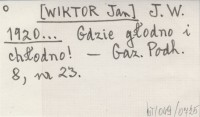 [WIKTOR Jan] J. W.
1920... Gdzie głodno i
chłodno! — Gaz. Podh.
8, nr 23.